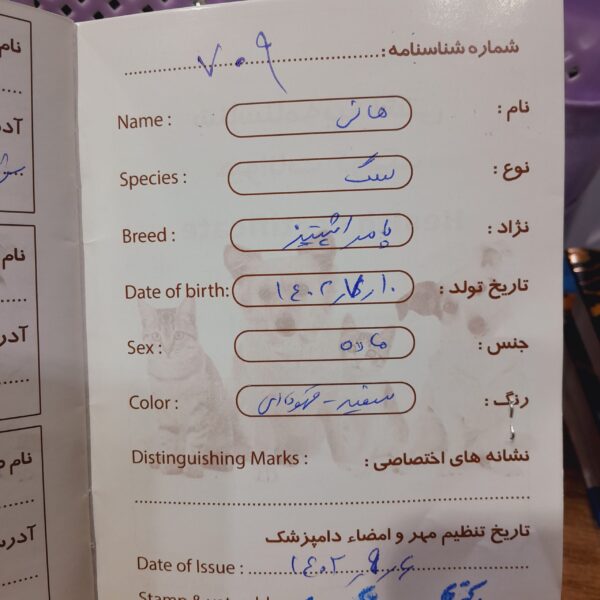 شماره شناسنامه : ۷۰۹
Name : هانی نام :
Species : سگ نوع :
Breed : پامر اشپیتز نژاد :
Date of birth: تاریخ تولد :
Sex : ماده جنس :
Color : سفید - قهوه‌ای رنگ :
Distinguishing Marks : نشانه های اختصاصی :
تاریخ تنظیم مهر و امضاء دامپزشک
Date of Issue :
نام
آدر
نام
آدر
نام
آدر